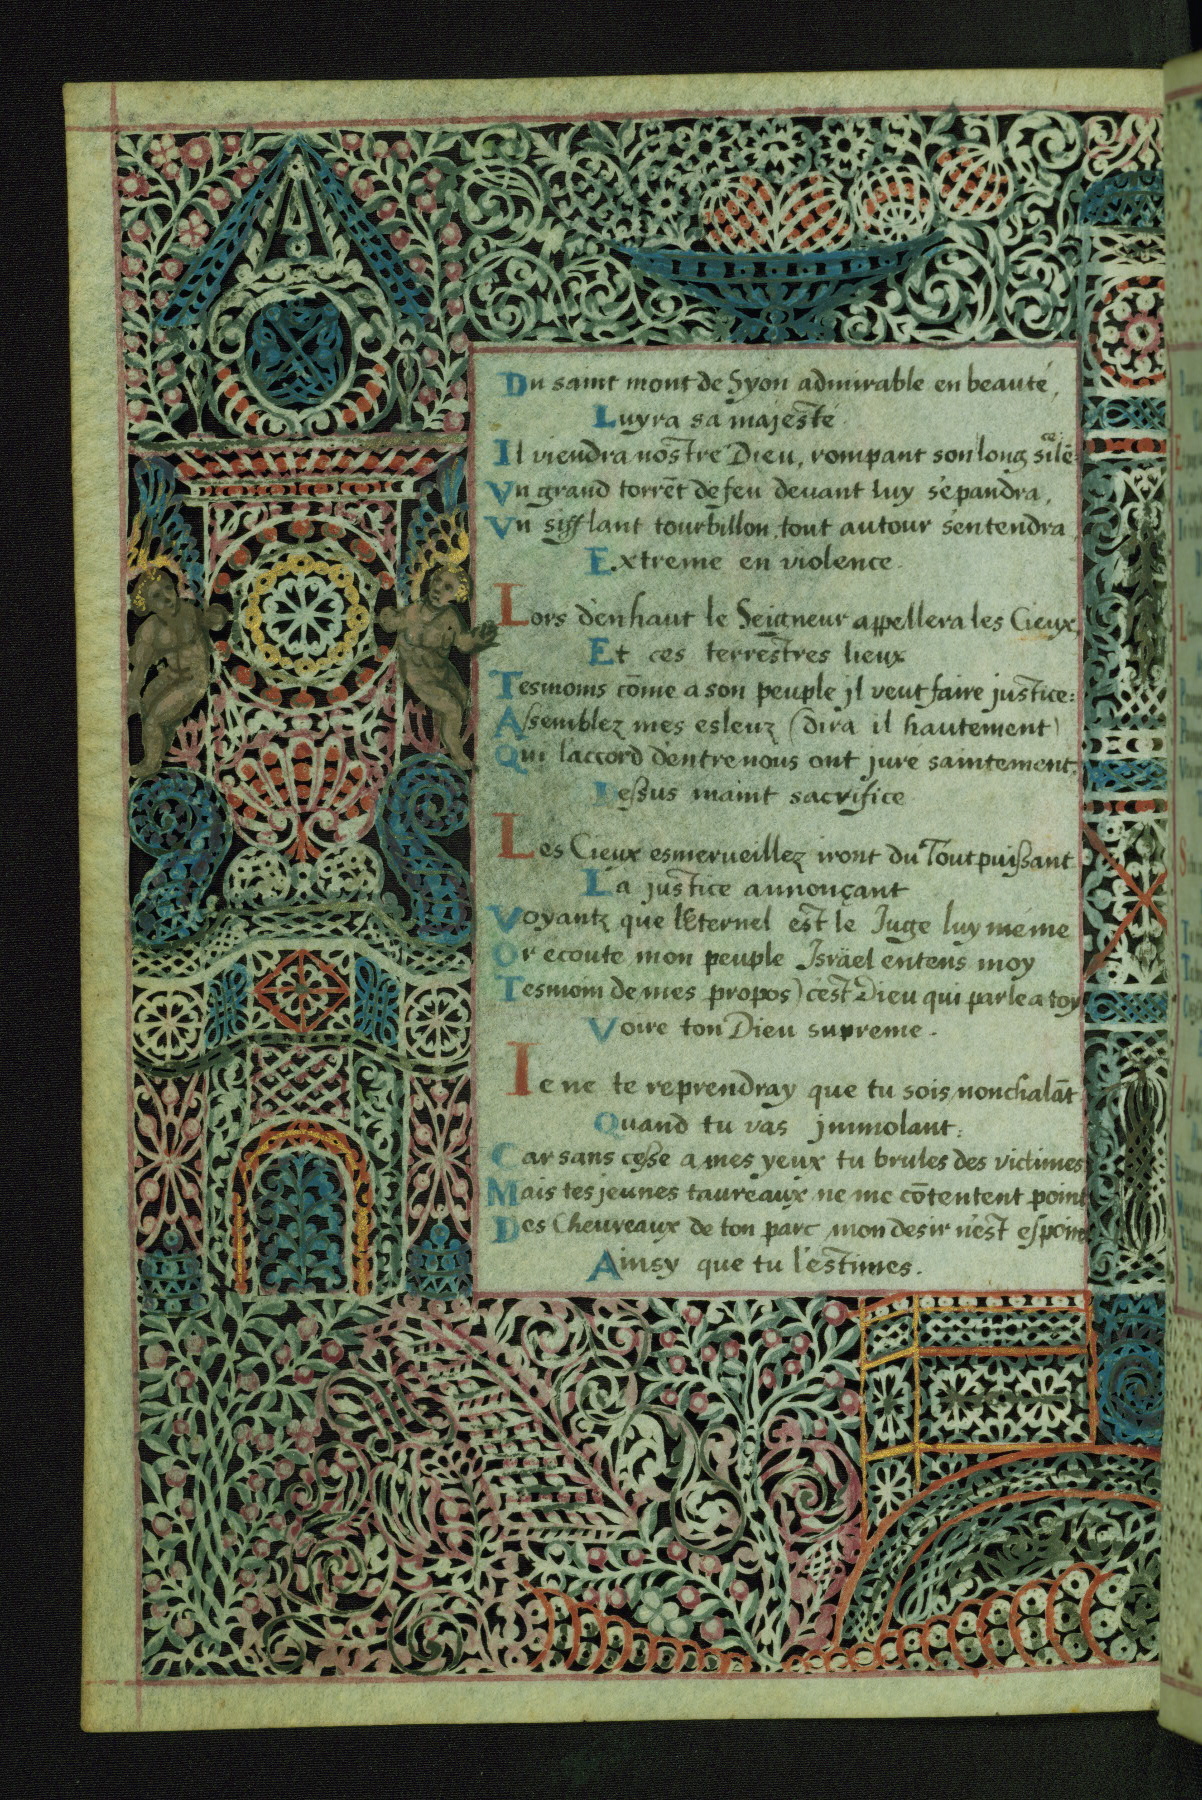 Du saint mont de Syon admirable en beauté,
Luyra sa majesté.
Il viendra nostre Dieu, rompant son long silē-ce
Vn grand torrēt de feu deuant luy s'épandra,
Vn sifflant tourbillon tout autour s'entendra,
Extreme en violence.
Lors d'enhaut le Seigneur appellera les Cieux,
Et ces terrestres lieux
Tesmoins cōme a son peuple jl veut faire justice:
Assemblez mes esleuz (dira il hautement)
Qui l'accord d'entre nous ont juré saintement,
Dessus maint sacrifice.
Les Cieux esmerveillez iront du Tout puissant
La justice annonçant
Voyantz que l'Eternel est le Juge luy méme
Or ecoute mon peuple Israël entens moy
Tesmoin de mes propos) c'est Dieu qui parle a toy
Voire ton Dieu supreme.
Ie ne te reprendray que tu sois nonchalāt
Quand tu vas jmmolant:
Car sans cesse a mes yeux tu brules des victimes
Mais tes jeunes taureaux ne me cōtentent point
Des Cheureaux de ton parc mon desir n'est espoint
Ainsy que tu l'estimes.